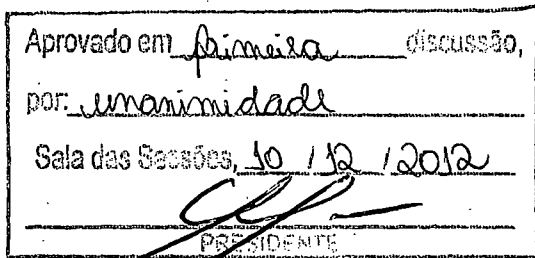 Aprovado em primeira discussão,
por: unanimidade
Sala das Sessões, 10 / 12 / 2012
PRESIDENTE